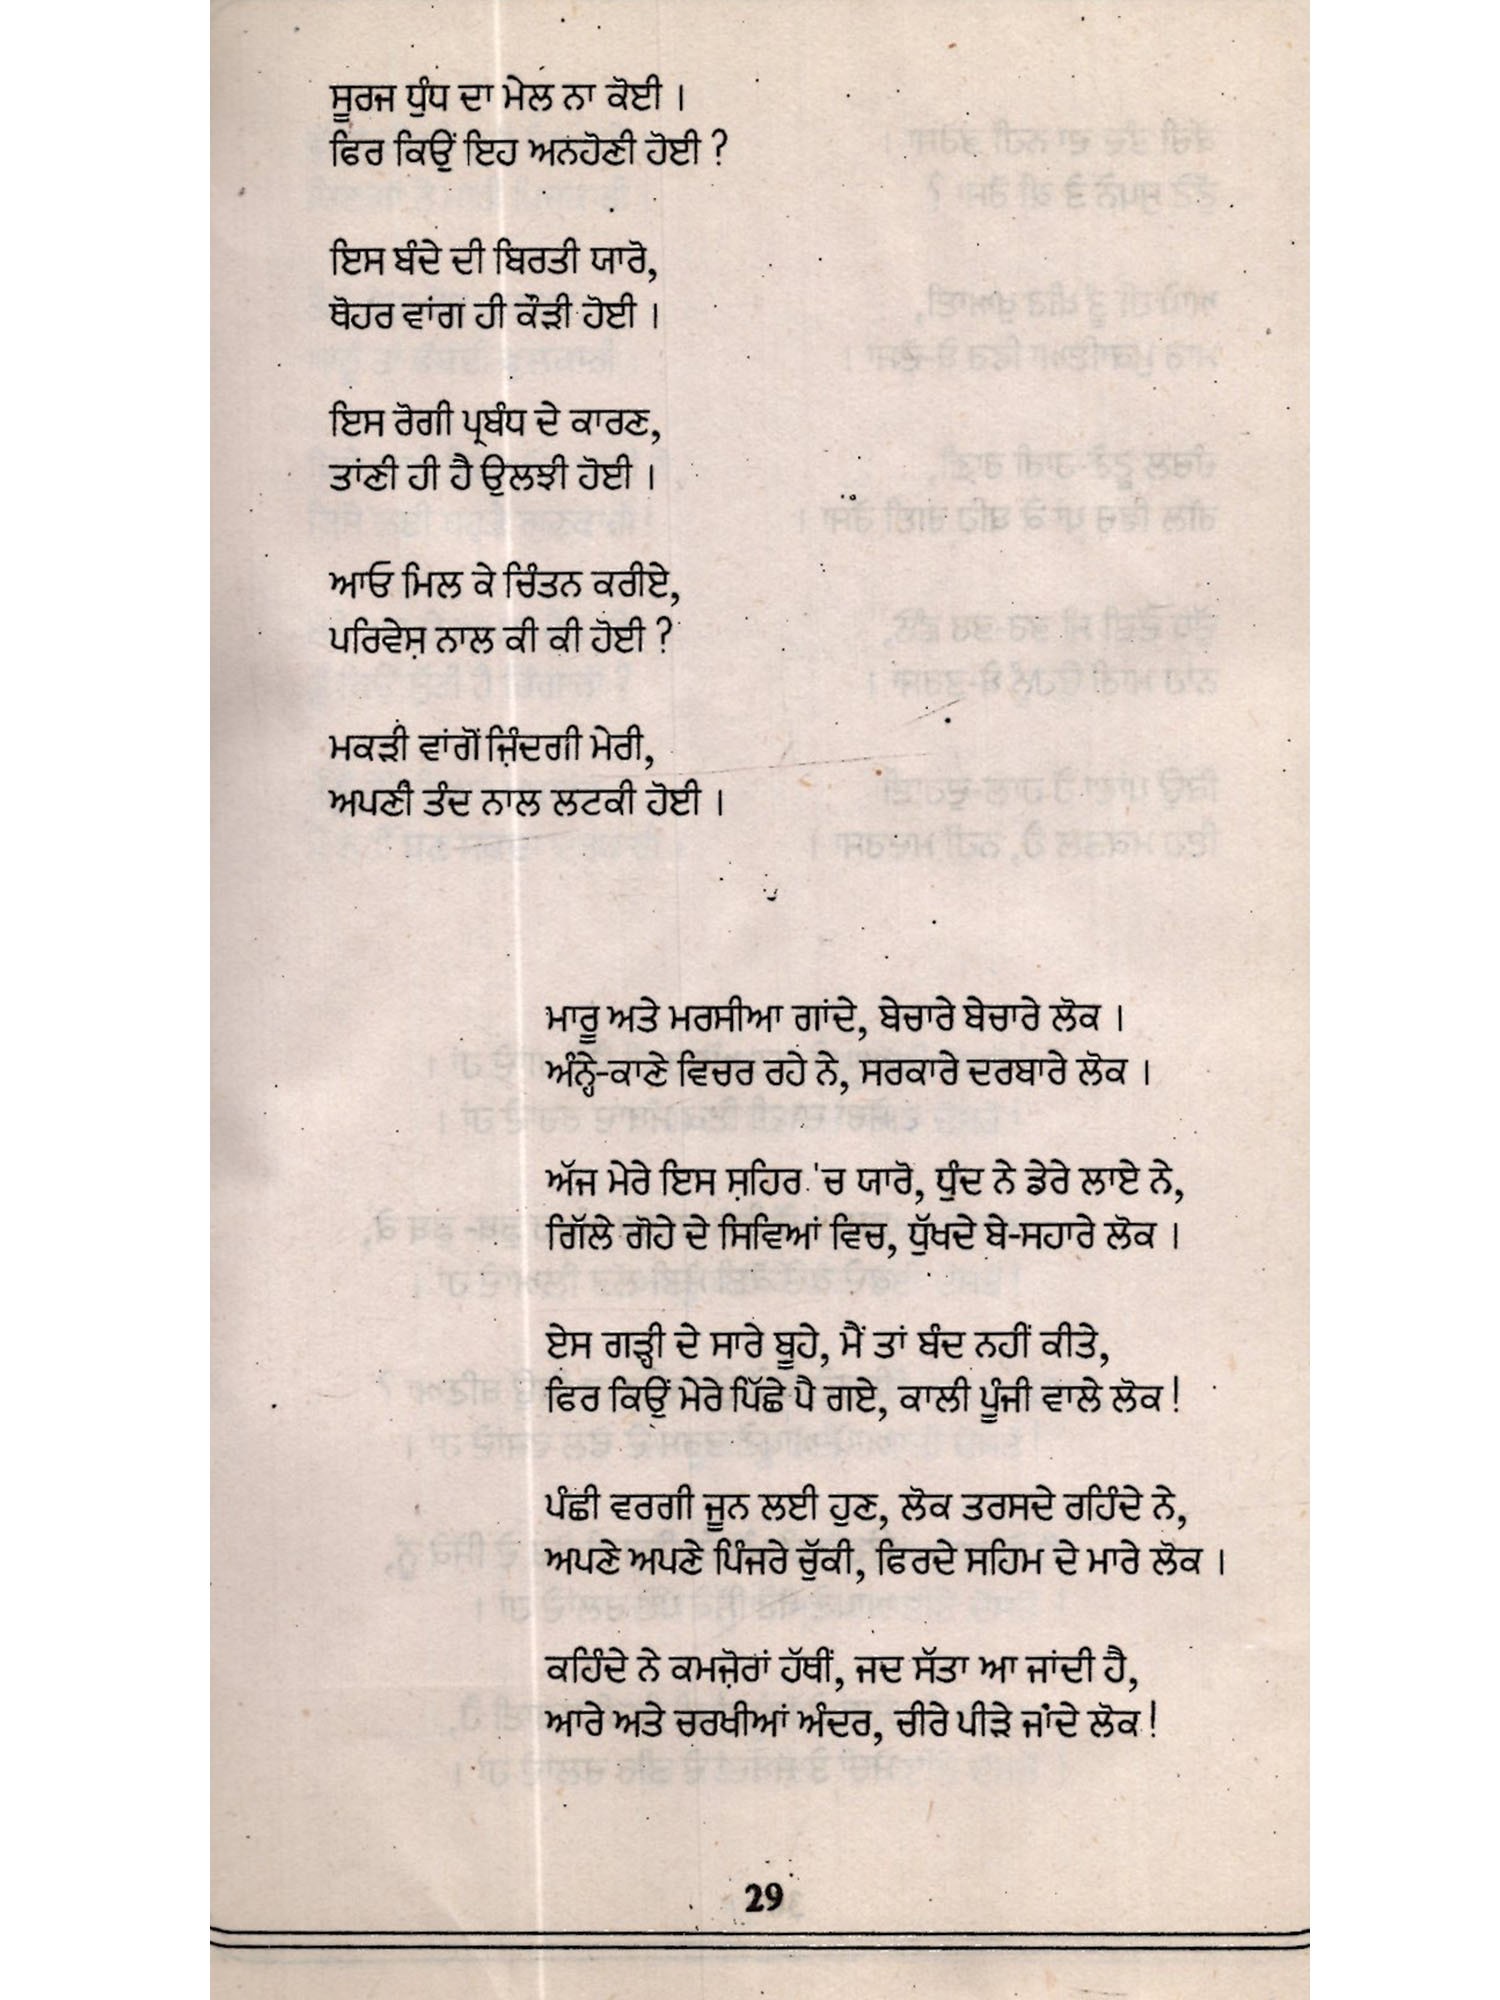 ਸੂਰਜ ਧੁੰਧ ਦਾ ਮੇਲ ਨਾ ਕੋਈ ।
ਫਿਰ ਕਿਉਂ ਇਹ ਅਨਹੋਣੀ ਹੋਈ ?
ਇਸ ਬੰਦੇ ਦੀ ਬਿਰਤੀ ਯਾਰੋ,
ਥੋਹਰ ਵਾਂਗ ਹੀ ਕੌੜੀ ਹੋਈ ।
ਇਸ ਰੋਗੀ ਪ੍ਰਬੰਧ ਦੇ ਕਾਰਣ,
ਤਾਂਣੀ ਹੀ ਹੈ ਉਲਝੀ ਹੋਈ ।
ਆਓ ਮਿਲ ਕੇ ਚਿੰਤਨ ਕਰੀਏ,
ਪਰਿਵੇਸ਼ ਨਾਲ ਕੀ ਕੀ ਹੋਈ ?
ਮਕੜੀ ਵਾਂਗੋਂ ਜ਼ਿੰਦਗੀ ਮੇਰੀ,
ਅਪਣੀ ਤੰਦ ਨਾਲ ਲਟਕੀ ਹੋਈ ।
ਮਾਰੂ ਅਤੇ ਮਰਸੀਆ ਗਾਂਦੇ, ਬੇਚਾਰੇ ਬੇਚਾਰੇ ਲੋਕ ।
ਅੰਨ੍ਹੇ-ਕਾਣੇ ਵਿਚਰ ਰਹੇ ਨੇ, ਸਰਕਾਰੇ ਦਰਬਾਰੇ ਲੋਕ ।
ਅੱਜ ਮੇਰੇ ਇਸ ਸ਼ਹਿਰ 'ਚ ਯਾਰੋ, ਧੁੰਦ ਨੇ ਡੇਰੇ ਲਾਏ ਨੇ,
ਗਿੱਲੇ ਗੋਹੇ ਦੇ ਸਿਵਿਆਂ ਵਿਚ, ਧੁੱਖਦੇ ਬੇ-ਸਹਾਰੇ ਲੋਕ ।
ਏਸ ਗੜ੍ਹੀ ਦੇ ਸਾਰੇ ਬੂਹੇ, ਮੈਂ ਤਾਂ ਬੰਦ ਨਹੀਂ ਕੀਤੇ,
ਫਿਰ ਕਿਉਂ ਮੇਰੇ ਪਿੱਛੇ ਪੈ ਗਏ, ਕਾਲੀ ਪੂੰਜੀ ਵਾਲੇ ਲੋਕ !
ਪੰਛੀ ਵਰਗੀ ਜੂਨ ਲਈ ਹੁਣ, ਲੋਕ ਤਰਸਦੇ ਰਹਿੰਦੇ ਨੇ,
ਅਪਣੇ ਅਪਣੇ ਪਿੰਜਰੇ ਚੁੱਕੀ, ਫਿਰਦੇ ਸਹਿਮ ਦੇ ਮਾਰੇ ਲੋਕ ।
ਕਹਿੰਦੇ ਨੇ ਕਮਜ਼ੋਰਾਂ ਹੱਥੀਂ, ਜਦ ਸੱਤਾ ਆ ਜਾਂਦੀ ਹੈ,
ਆਰੇ ਅਤੇ ਚਰਖੀਆਂ ਅੰਦਰ, ਚੀਰੇ ਪੀੜੇ ਜਾਂਦੇ ਲੋਕ !
29